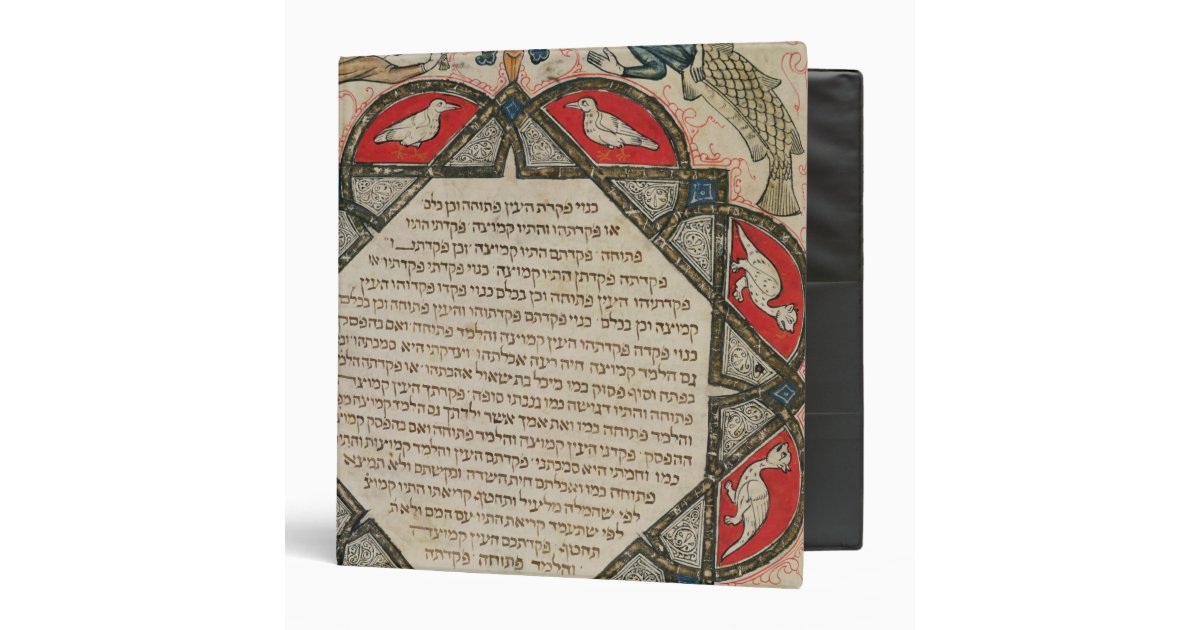 כנוי פקדת העין פתוחה וכן כלם׳
או פקדתהו והתיו קמוצה׳ פקדתי התיו
פתוחה׳ פקדתם התיו קמוצה׳ וכן פקדתי
פקדתה פקדתן התיו קמוצה׳ כנוי פקדתי פקדתיו או
פקדתיהו העין פתוחה וכן בכלם כנוי פקדו פקדוהו העין
קמוצה וכן בכלם׳ כנוי פקדתם פקדתוהו והעין פתוחה וכן בכלם
כנוי פקדה פקדתהו העין קמוצה והלמד פתוחה׳ ואם בהפסק
גם הלמד קמוצה חיה רעה אכלתהו׳ וצדקתי היא סמכתהו׳
בפתח וסוף פסוק כמו מיכל בת שאול אהבתהו׳ או פקדתה הלמד
פתוחה והתיו דגישה כמו גנבתו סופה׳ פקדתך העין קמוצה
והלמד פתוחה כמו ואת אמך אשר ילדתך גם הלמד קמוצה
ההפסק׳ פקדני העין קמוצה והלמד פתוחה ואם בהפסק קמוצה
כמו וחמתי היא סמכתני׳ פקדתם העין והלמד קמוצות והתיו
פתוחה כמו ואכלתם חית השדה ובקשתם ולא תמצא
לפי שהמלה מלעיל ותחטף קריאתו התיו קמוצ
לפי שתעמד קריאת התיו עם המם ולא ת
תחטף׳ פקדתכם העין קמוצה
והלמד פתוחה׳ פקדתה